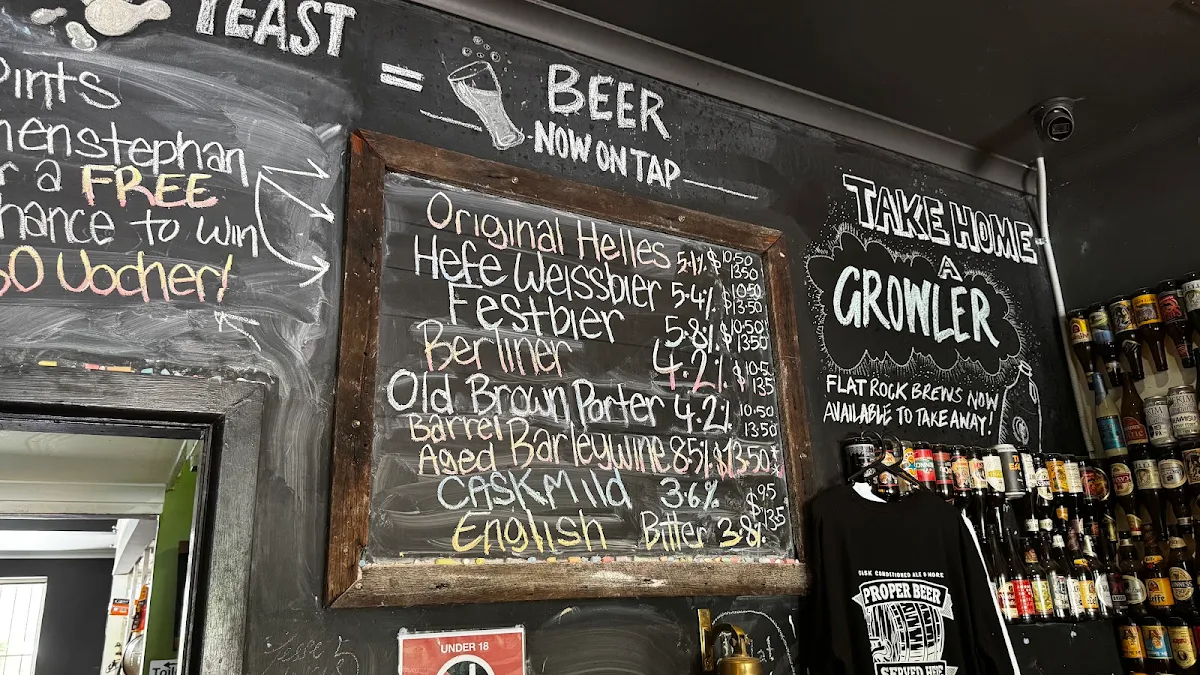 YEAST
= BEER
NOW ON TAP
Pints
henstephan
a FREE
hance to win
50 Vocher!
Original Helles 5.1% $ 10.50
13.50
Hefe Weissbier 5.4% 10.50
$13.50
Festbier 5.8% $10.50
13.50
Berliner 4.2% $ 10.5
13.5
Old Brown Porter 4.2% 10.50
13.50
Barrel
Aged Barleywine 8.5% $13.50
CASK Mild 3.6% $9.5
$13.5
English Bitter 3.8%
TAKE HOME
A
GROWLER
FLAT ROCK BREWS NOW
AVAILABLE TO TAKE AWAY!
UNDER 18
CASK CONDITIONED ALE & MORE
PROPER BEER
SERVED HERE